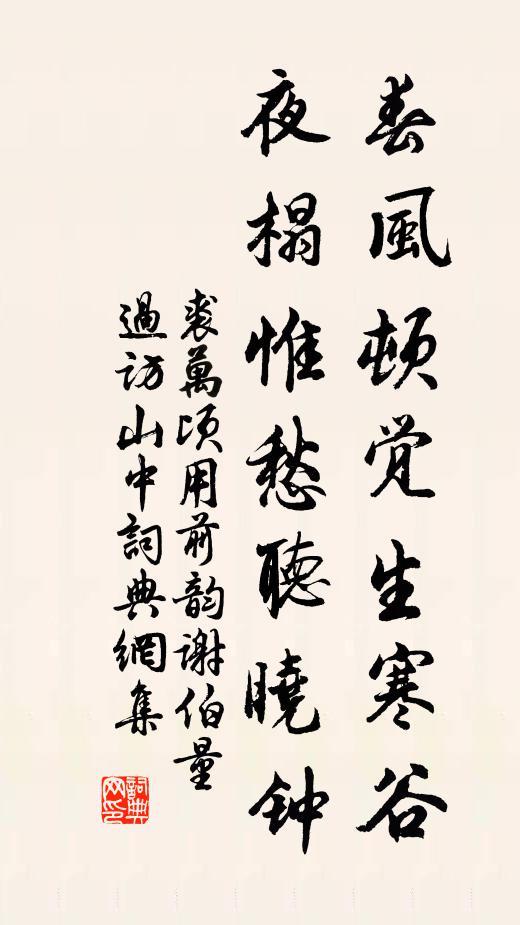 春風頓觉生寒谷
夜榻惟愁聽曉钟
裘萬顷用前韵谢伯量
過访山中詞典網集
詞典
网印